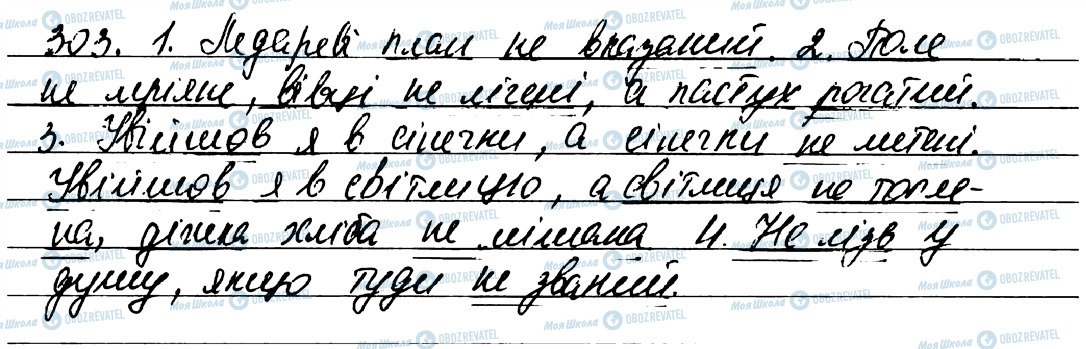 303. 1. Ледареві план не вказаний. 2. Поле
не міряне, вівці не лічені, а пастух рогатий.
3. Увійшов я в сінечки, а сінечки не метені.
Увійшов я в світлицю, а світлиця не топле-
на, діжка хліба не мішана 4. Не лізь у
душу, якщо туди не званий.